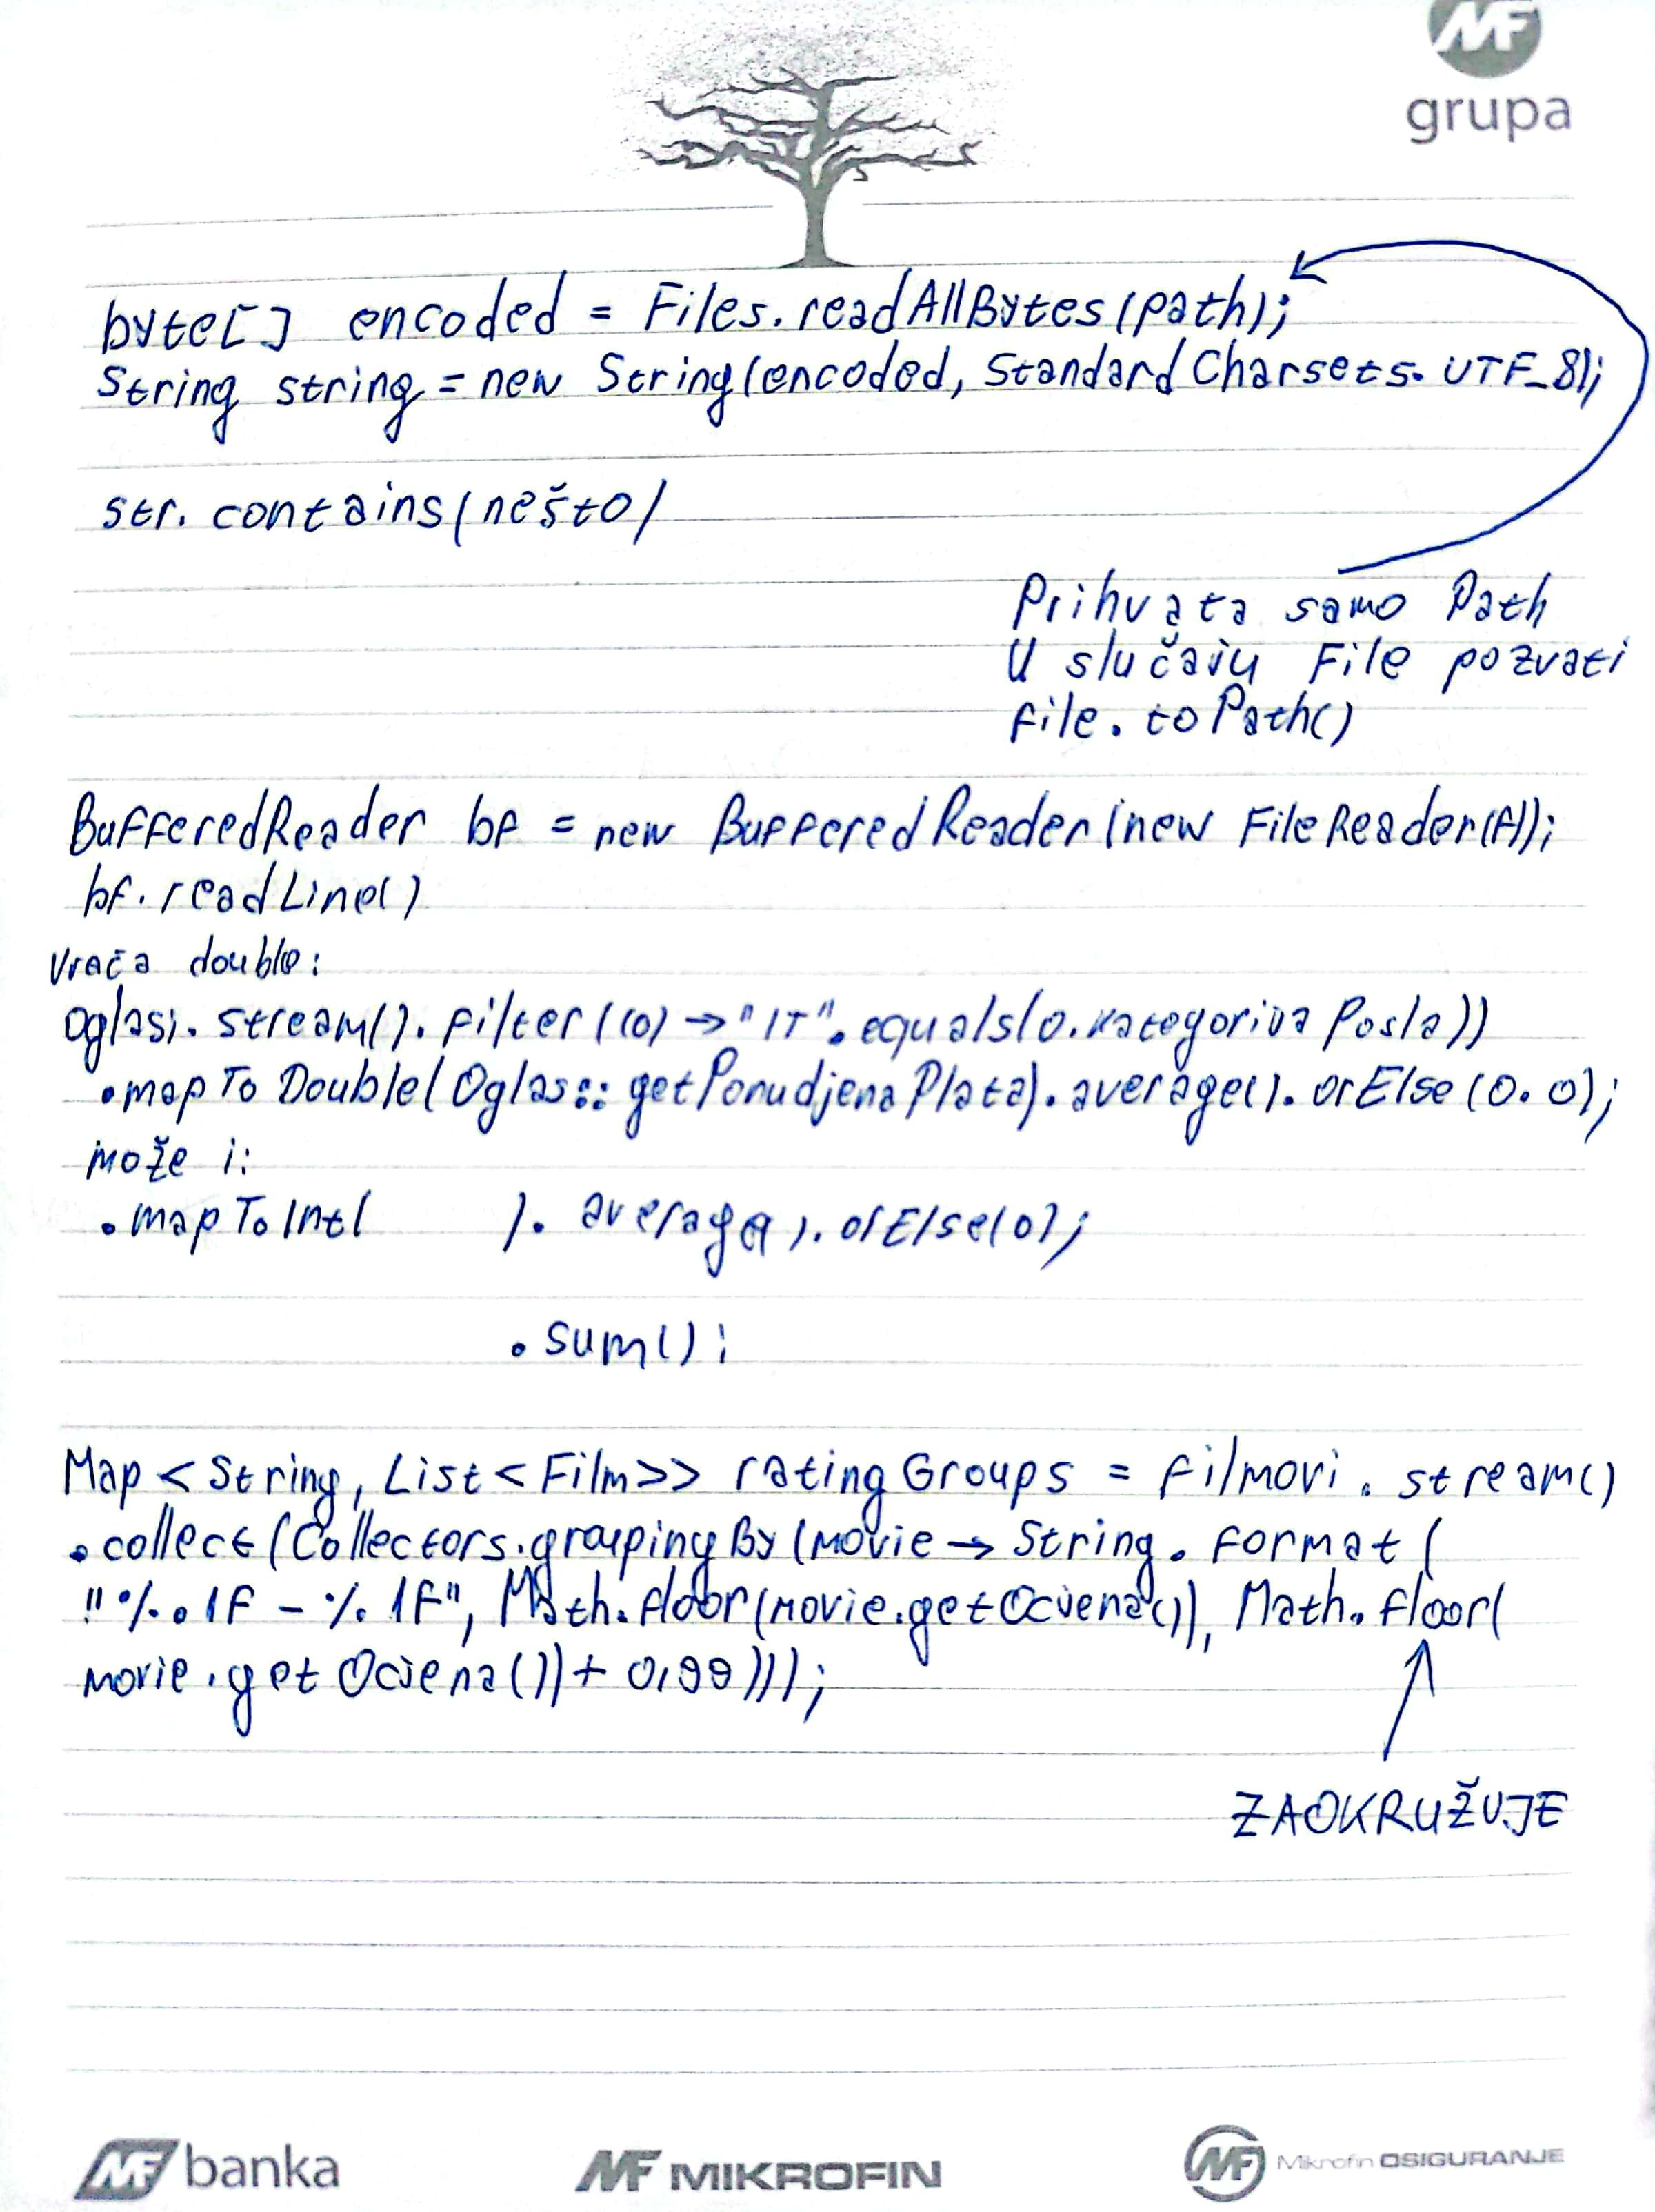 MF
grupa
byte[] encoded = Files.readAllBytes(path);
String string = new String(encoded, StandardCharsets.UTF_8);
str.contains(nešto)
Prihvata samo Path
U slučaju File pozvati
file.toPath()
BufferedReader bf = new BufferedReader(new FileReader(f));
bf.readLine()
Vraća double:
Oglasi.stream().filter((o) → "IT".equals(o.kategorijaPosla))
.mapToDouble(Oglas::getPonudjenaPlata).average().orElse(0.0);
može i:
.mapToInt( ).average().orElse(0);
.sum();
Map<String, List<Film>> ratingGroups = filmovi.stream()
.collect(Collectors.groupingBy(movie → String.format(
"%.1f - %.1f", Math.floor(movie.getOcjena()), Math.floor(
movie.getOcjena()) + 0,99)));
ZAOKRUŽUJE
MF banka
MF MIKROFIN
MF Mikrofin OSIGURANJE